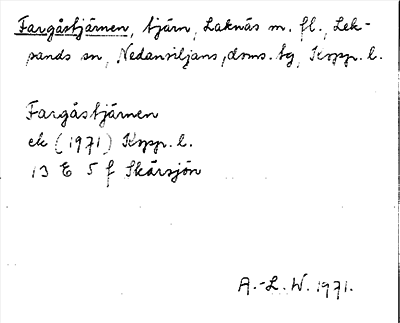 Fargåstjärnen, tjärn, Laknäs m. fl., Lek-
sands sn, Nedansiljans doms. tg, Kopp. l.
Fargåstjärnen
ek (1971) Kopp. l.
13 E 5 f Skärsjön
A.-L. W. 1971.